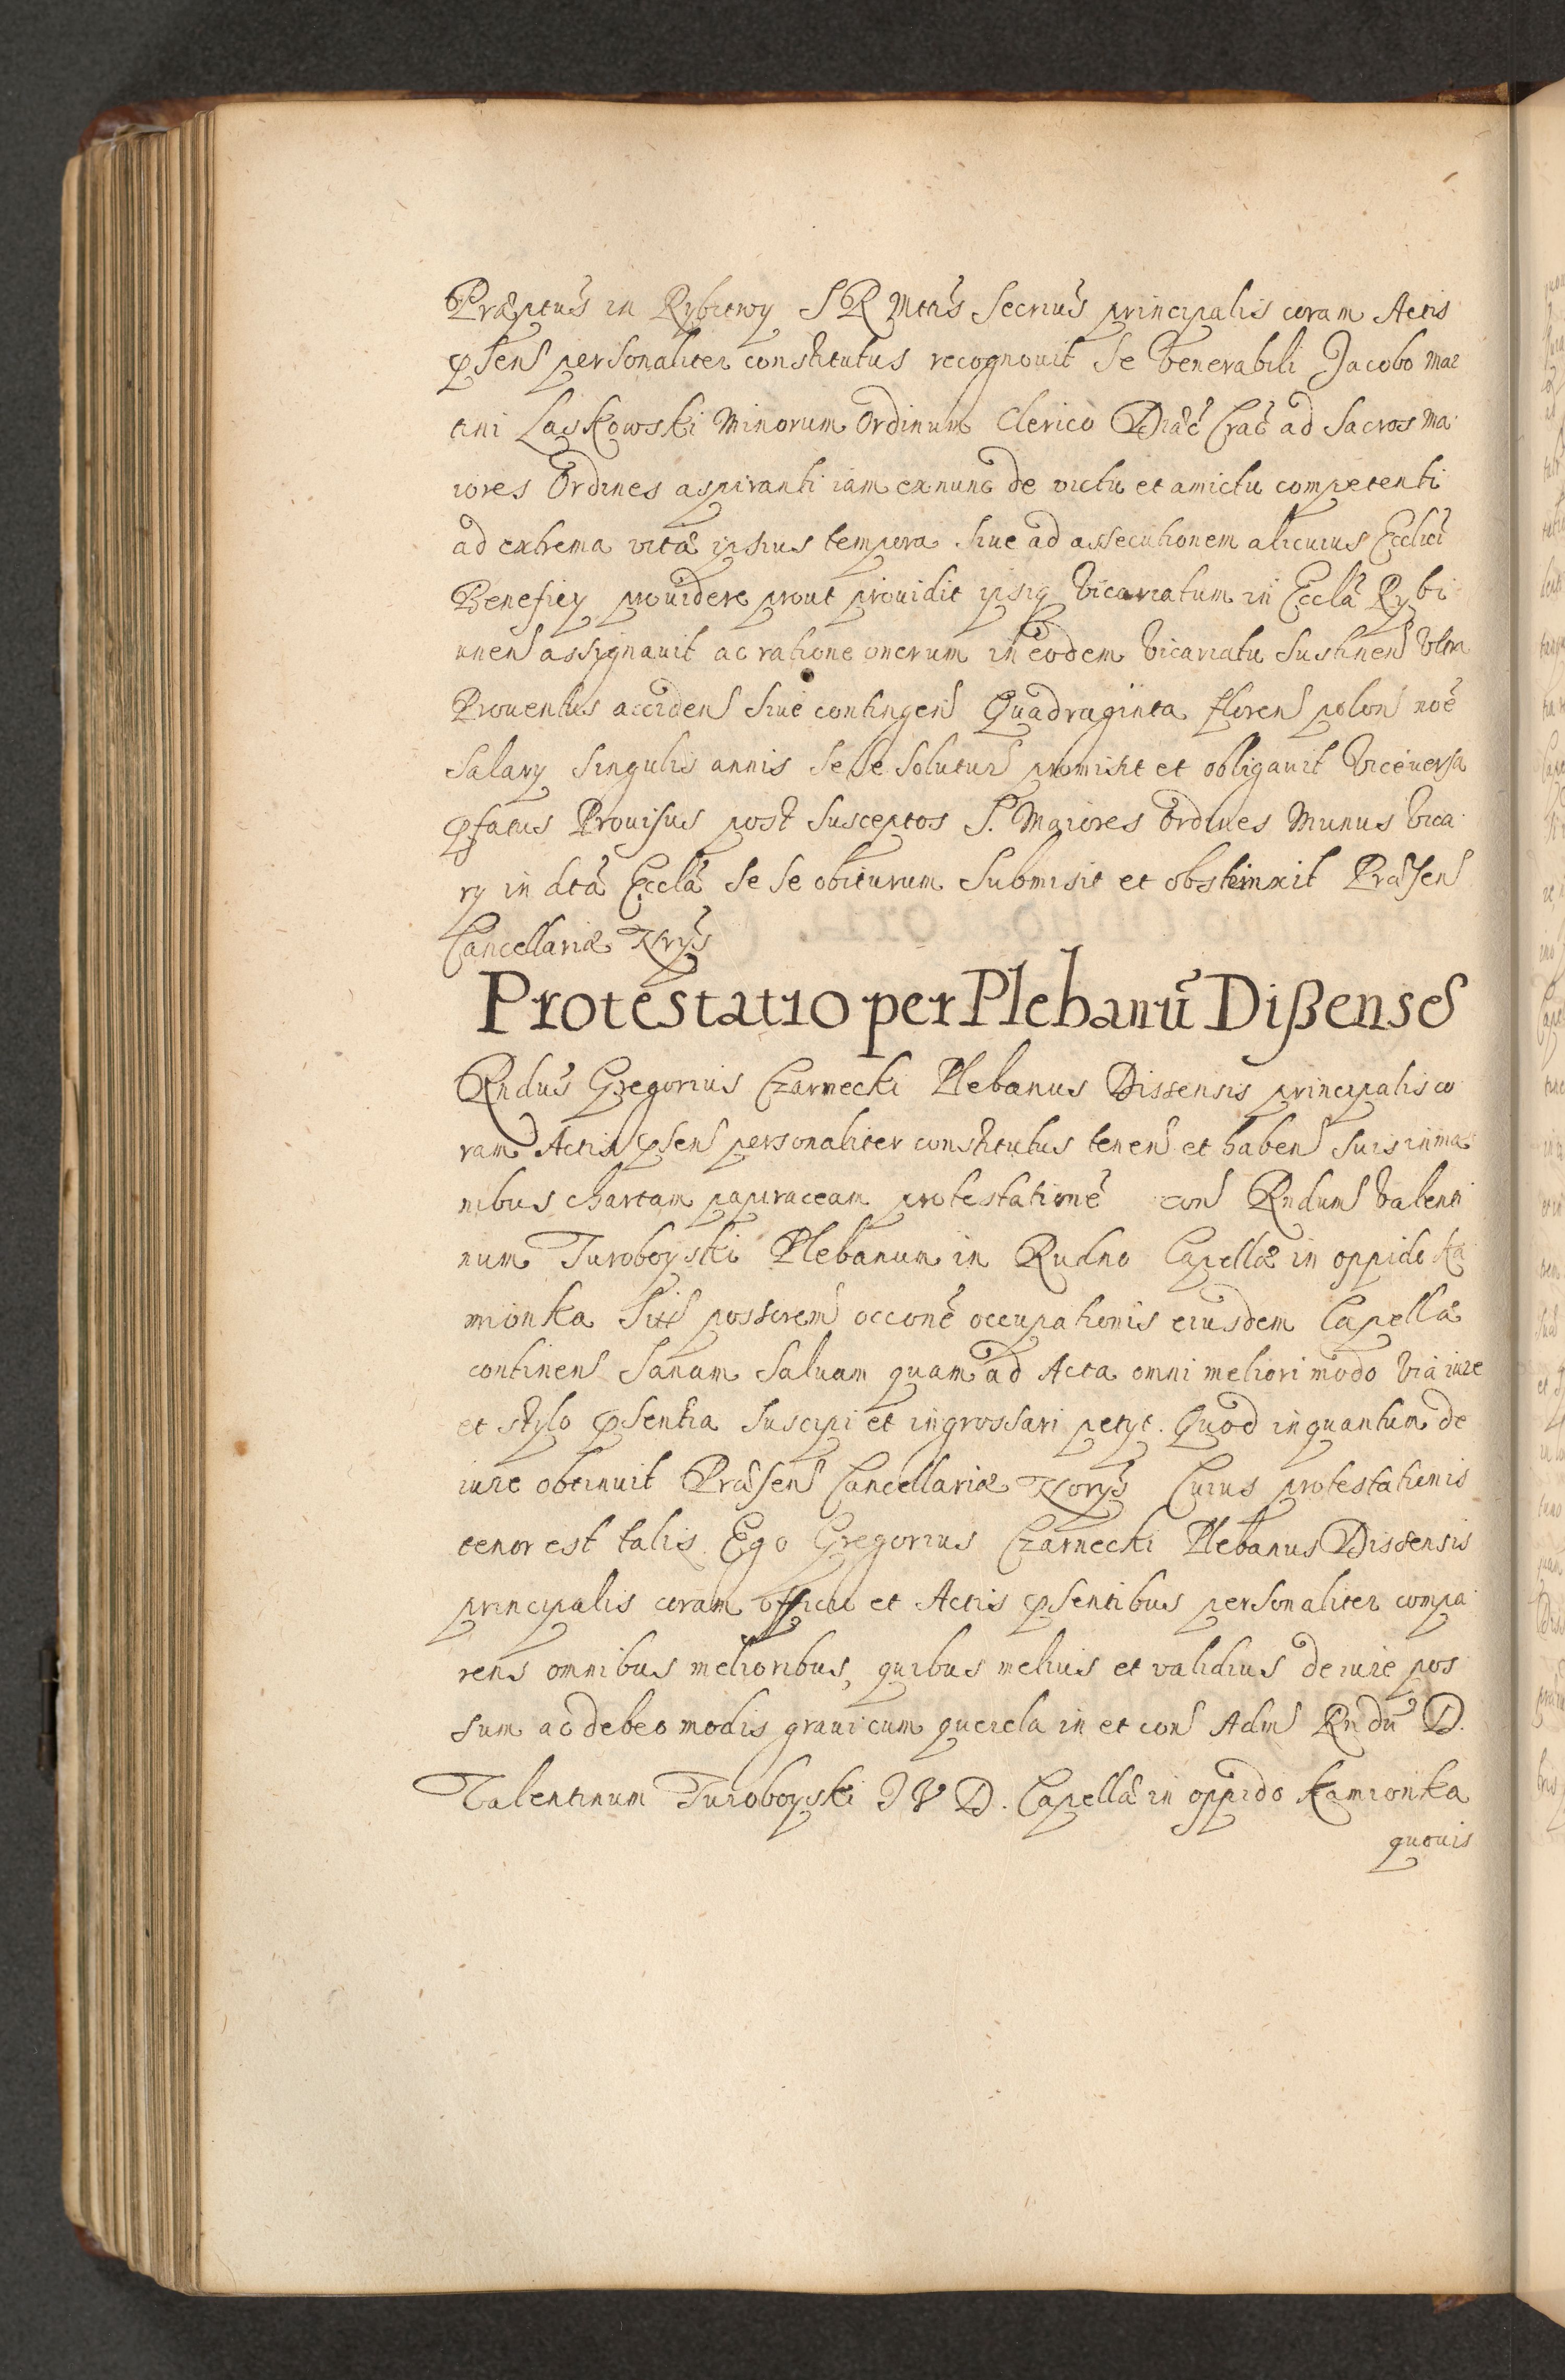 Præptus in Rybitwy S R Mttis Secrius principalis coram Actis
psens personaliter constitutus recognouit se Venerabili Jacobo Mar
tini Laskowski Minorum Ordinum Clerico Diæc Crac ad Sacros Ma
iores Ordines aspiranti iam exnunc de victu et amictu competenti
ad extrema vitæ ipsius tempora siue ad assecutionem alicuius Ecclici
Beneficy prouidere prout prouidit ipsiq Vicariatum in Eccla Rybi
unen assignauit ac ratione onerum in eodem Vicariatu Sustinen Vltra
Prouentus acciden siue contingen Quadraginta floren polon noe
Salary singulis annis se se solutur promisit et obligauit Viceuersa
pfatus Prouisus post susceptos S. Maiores Ordines Munus Vica
ry in dta Eccla se se obiturum submisit et obstrinxit Præsen
Cancellariæ Nrys
Protestatio per Plebanū Dißense
Rndus Gregorius Czarnecki Plebanus Dissensis principalis co
ram Actis psen personaliter constitutus tenen et haben suis in ma
nibus chartam papiraceam protestatione con Rndum Valenti
num Turoboyski Plebanum in Rudno Capellæ in oppido Ka
mionka Sitæ possorem occone occupationis eiusdem Capellæ
continen Sanam Saluam quam ad Acta omni meliori modo via iure
et stylo psentia suscipi et ingrossari petyt. Quod inquantum de
iure obtinuit Præsen Cancellariæ Norys Cuius protestationis
tenor est talis Ego Gregorius Czarnecki Plebanus Dissensis
principalis coram officio et Actis psentibus personaliter compa
rens omnibus melioribus, quibus melius et validius de iure pos
sum ac debeo modis graui cum querela in et con Adm Rndū D.
Valentinum Turoboyski J V D. Capellæ in oppido Kamionka
quouis